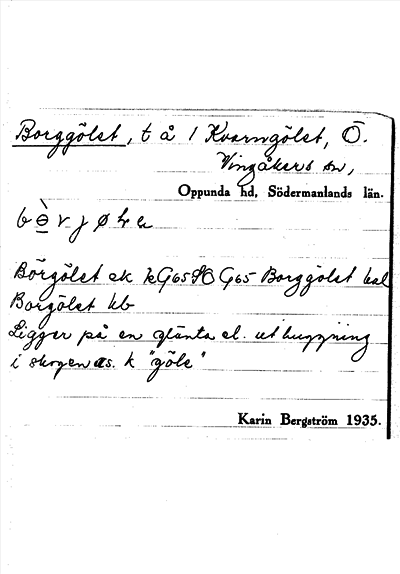 Borggölet, t å 1 Kvarngölet, Ö.
Vingåkers sn,
Oppunda hd, Södermanlands län.
Börgölet ek kG65 SÖ G65 Borggölet
Borgölet hb
Ligger på en glänta el. uthuggning
i skogen as. k "göle"
Karin Bergström 1935.